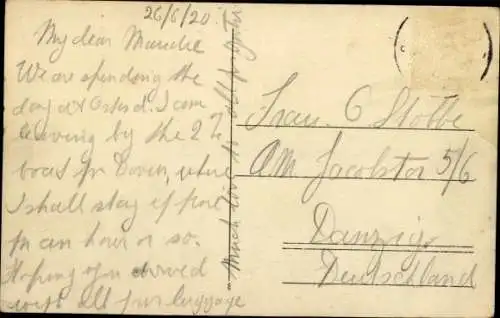 26/6/20
My dear Maudie
We are spending the
day at Ostend. I am
leaving by the 2
boat for Dover, where
I shall stay if
for an hour or so.
Hoping you arrived
with all your luggage
Much love to all
Frau. C Stobbe
AM. Jacobstor 5/6
Danzig
Deutschland